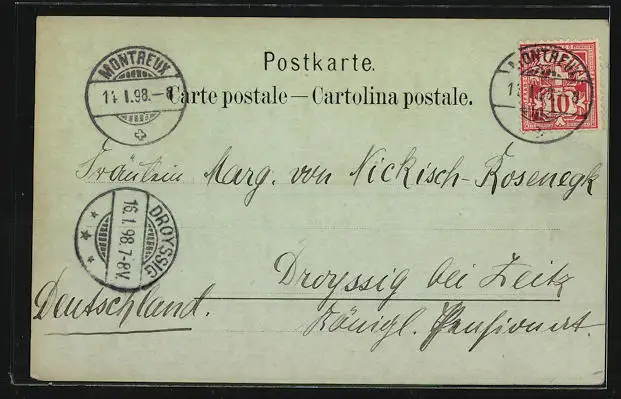 Postkarte.
Carte postale — Cartolina postale.
MONTREUX
14.I.98.-8
MONTREUX
10
Fräulein Marg. von Nickisch-Rosenegk
DROYSSIG
16.1.98.7-8V
Droyssig bei Zeitz
Deutschland.
Königl. Pensionat.